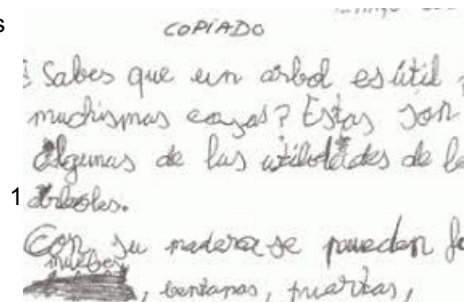 s
COPIADO
¿Sabes que un arbol es útil
muchismas cosas? Estas son
Algunas de las utilidades de
1 árboles.
Con su madera se pueden
muebles
, bentanas, puertas,